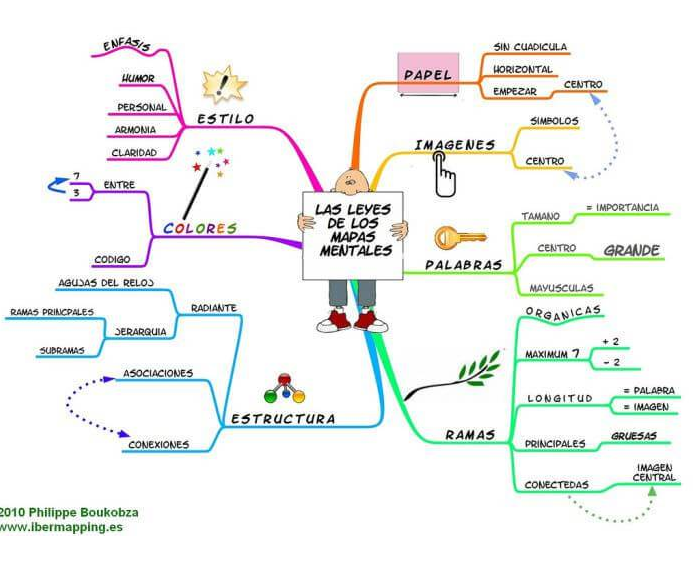 LAS LEYES
DE LOS
MAPAS
MENTALES
PAPEL
SIN CUADICULA
HORIZONTAL
EMPEZAR
CENTRO
IMAGENES
SIMBOLOS
CENTRO
PALABRAS
TAMANO
= IMPORTANCIA
CENTRO
GRANDE
MAYUSCULAS
RAMAS
ORGANICAS
MAXIMUM 7
+ 2
- 2
LONGITUD
= PALABRA
= IMAGEN
PRINCIPALES
GRUESAS
CONECTEDAS
IMAGEN
CENTRAL
ESTRUCTURA
RADIANTE
AGUJAS DEL RELOJ
JERARQUIA
RAMAS PRINCPALES
SUBRAMAS
ASOCIACIONES
CONEXIONES
COLORES
ENTRE
7
3
CODIGO
ESTILO
ENFASIS
HUMOR
PERSONAL
ARMONIA
CLARIDAD
2010 Philippe Boukobza
www.ibermapping.es